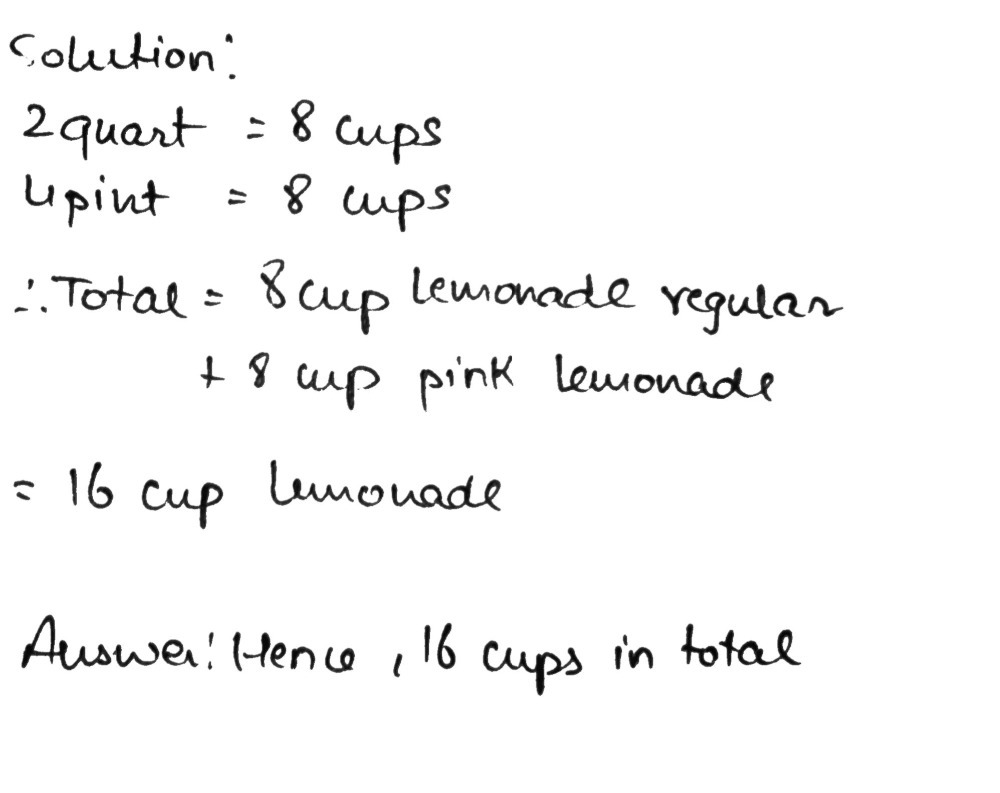 Solution:
2 quart = 8 cups
4 pint = 8 cups
∴ Total = 8 cup lemonade regular
+ 8 cup pink lemonade
= 16 cup lemonade
Answer: Hence, 16 cups in total